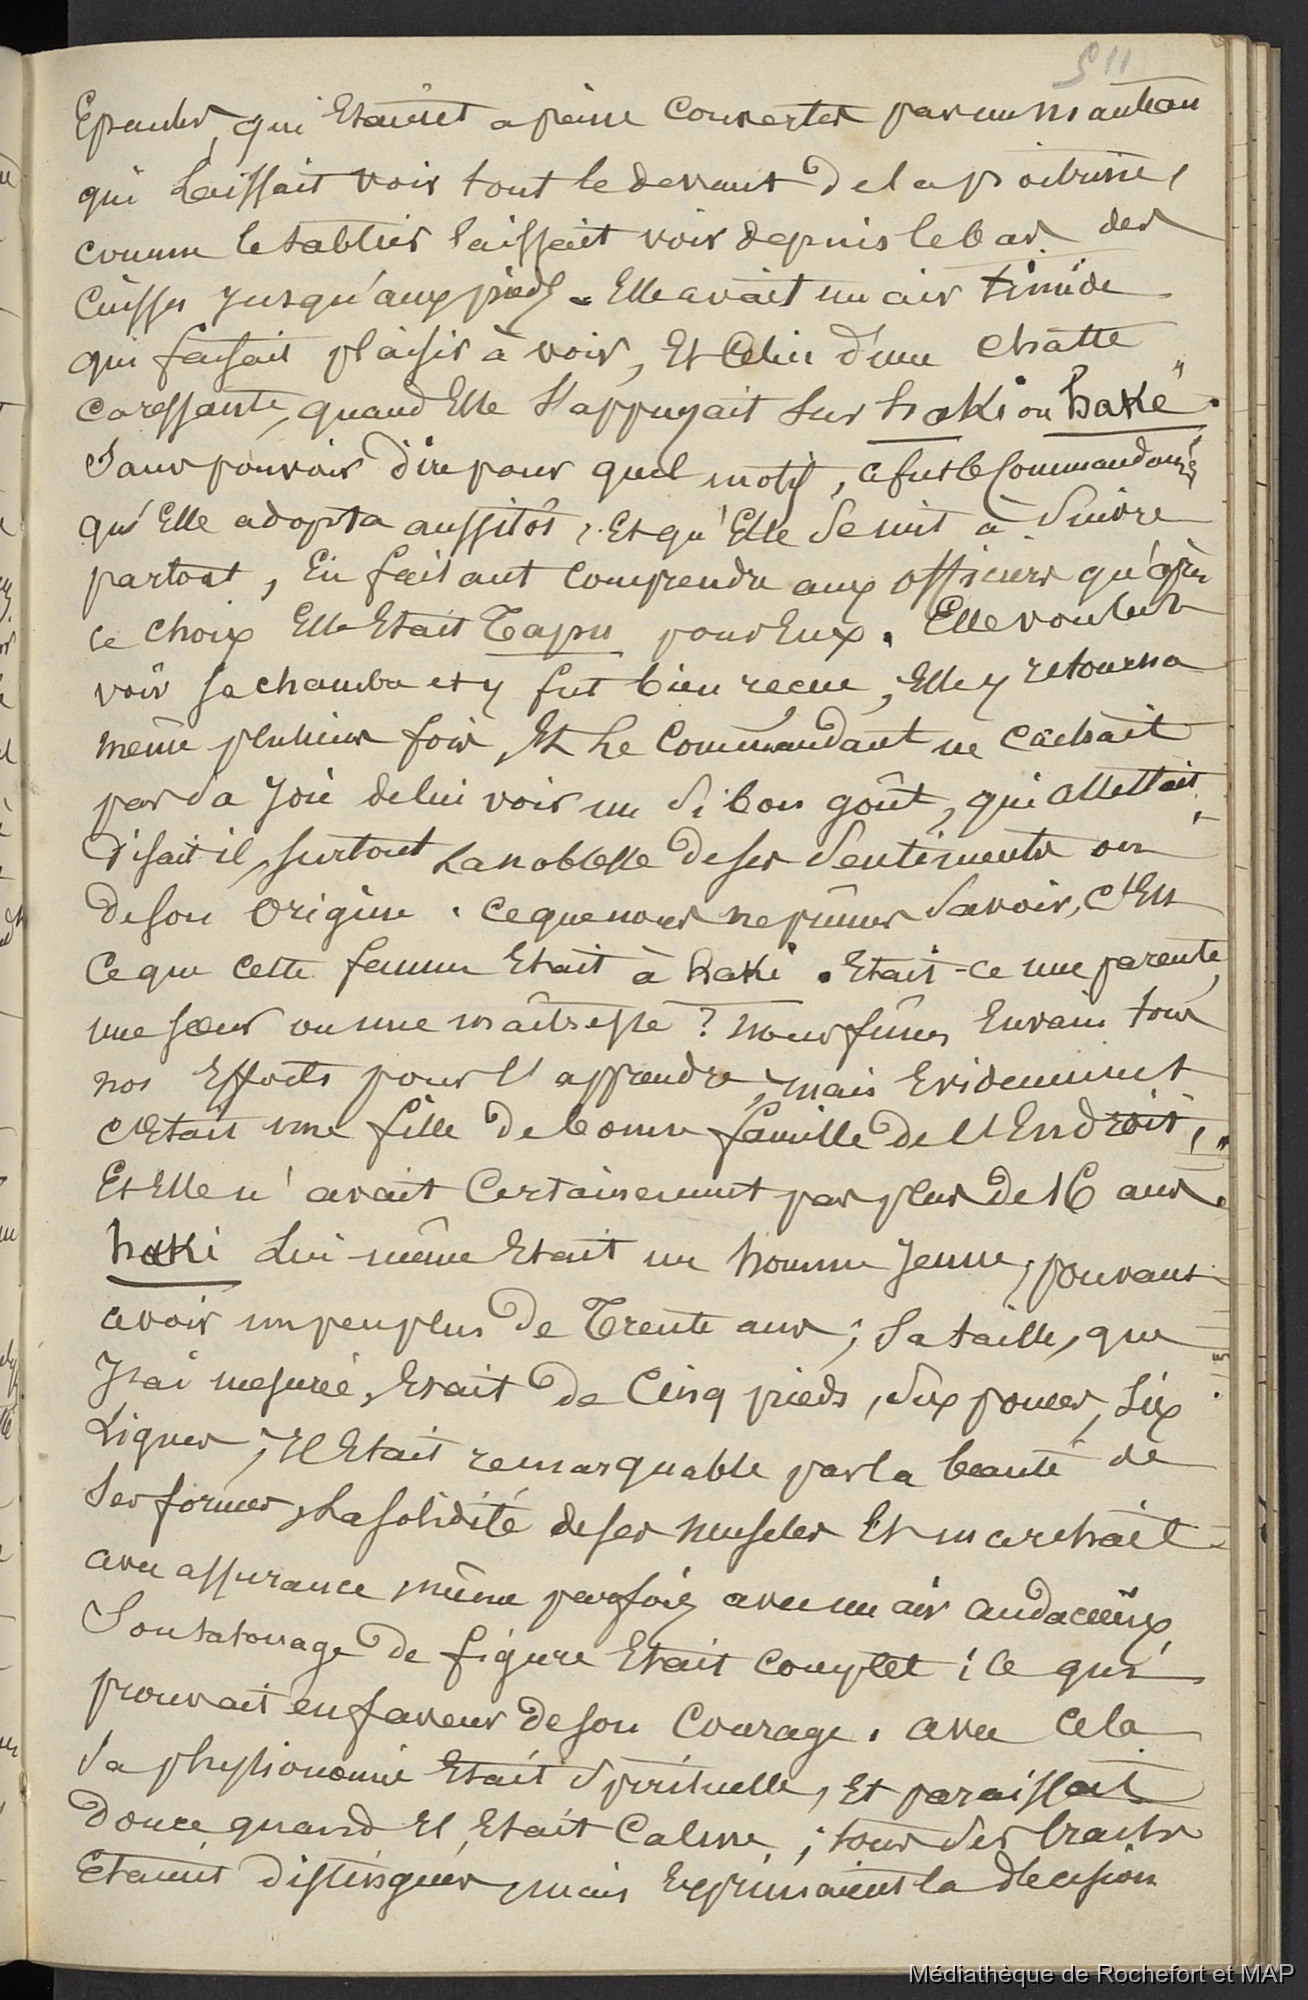 511
Epaules, qui Etaient a peine Couvertes par un manteau
qui Laissait voir tout le devant de la poitrine,
comme le tablier laissait voir depuis le bas des
Cuisses Jusqu'aux pieds. Elle avait un air timide
qui faisait plaisir à voir, Et Celui d'une Chatte
caressante, quand Elle S'appuyait Sur haki ou hake".
Sans pouvoir dire pour quel motif, ce fut le Commandant
qu'Elle adopta aussitôt, Et qu'Elle Se mit à Suivre
partout, En faisant Comprendre aux officiers qu'après
ce choix Elle Etait Tapu pour Eux. Elle voulut
voir sa chambre et y fut bien recue, Elle y retourna
même plusieurs fois, Et Le Commandant ne Cachait
pas Sa Joie de lui voir un Si bon goût, qui attestait,
disait-il, surtout La noblesse de ses Sentiments ou
de son Origine. Ce que nous ne pûmes Savoir, c'Est
Ce que Cette femme Etait à haki. Etait-ce une parente,
une soeur ou une maîtresse ? nous fîmes Envain tous
nos Efforts pour l'apprendre, mais Evidemment
c'Etait une fille de bonne famille de l'Endroit,
Et Elle n'avait Certainement pas plus de 16 ans.
haki Lui-même Etait un homme Jeune, pouvant
avoir un peu plus de Trente ans ; Sa taille, que
J'ai mesurée, Etait de Cinq pieds, Six pouces, Six
Lignes ; Il Etait remarquable par la beauté de
Ses formes, La solidité de ses muscles Et marchait
avec assurance, même parfois avec un air audacieux,
Son tatouage de figure Etait complet ; ce qui
prouvait en faveur de son Courage. avec cela
Sa physionomie Etait Spirituelle, Et paraissait
Douce quand Il Etait Calme ; tous Ses traits
Etaient distingués, mais Exprimaient la décision
Médiathèque de Rochefort et MAP